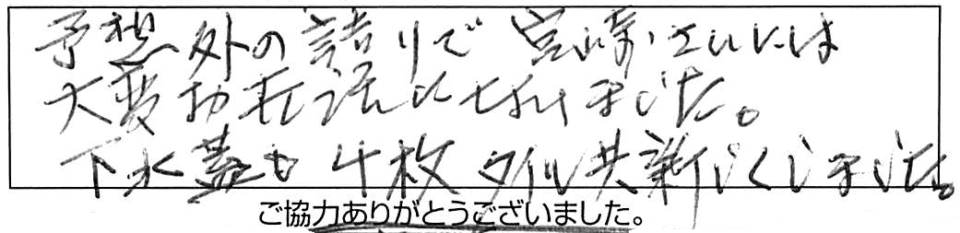 予想外の詰りで宮崎さんには
大変お世話になりました。
下水蓋も4枚タイル共新しくしました。
ご協力ありがとうございました。